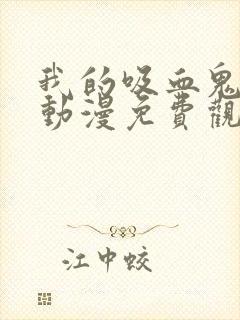 我的吸血鬼
動漫免費觀
江中蛟